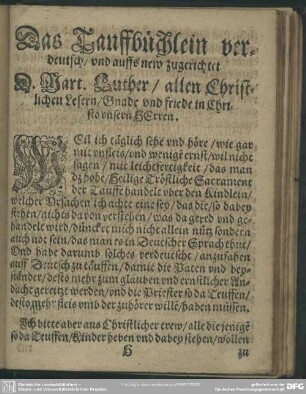 Das Tauffbüchlein ver-
deutsch/ vnd auffs new zugerichtet
D. Mart. Luther/ allen Christ-
lichen Lesern/ Gnade vnd friede in Chri-
sto vnsern HErren.
WEil ich täglich sehe vnd höre/ wie gar
mit vnfleis/ vnd wenig ernst/ wil nicht
sagen/ mit leichtfertigkeit/ das man
dz hohe/ heilige Tröstliche Sacrament
der Tauffe handele vber den Kindlein/
welcher Vrsachen ich achte eine sey/ das die/ so dabey
stehen/ nichts davon verstehen/ was da gered vnd ge-
handele wird/ dünckt mich nicht allein nütz sondern
auch not sein/ das man es in Deutscher Sprach thue/
Vnd habe darumb solches verdeutscht/ anzufahen
auff Deutsch zu täuffen/ damit die Paten vnd bey-
ständer/ desto mehr zum glauben vnd ernstlicher An-
dacht gereitzt werden/ vnd die Priester so da Teuffen/
desto mehr fleis vmb der zuhörer wille/ haben müssen.
Ich bitte aber aus Christlicher trew/ alle die jenige
so da Teuffen/ Kinder heben vnd dabey stehen/ wollen
H
zu